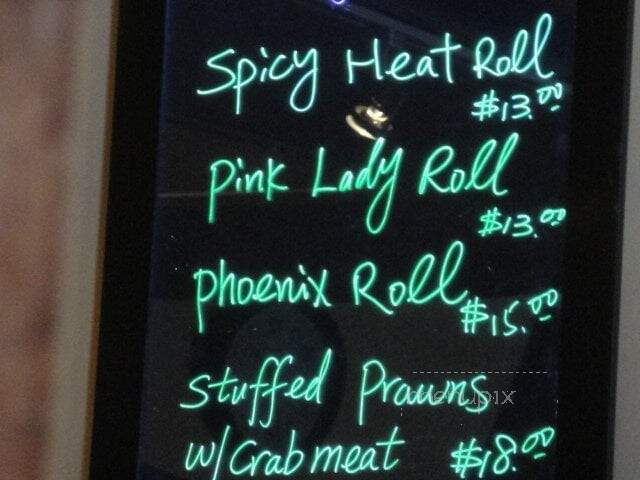 Spicy Heat Roll
$13.00
Pink Lady Roll
$13.00
Phoenix Roll
$15.00
Stuffed Prawns
w/ Crab meat $18.00